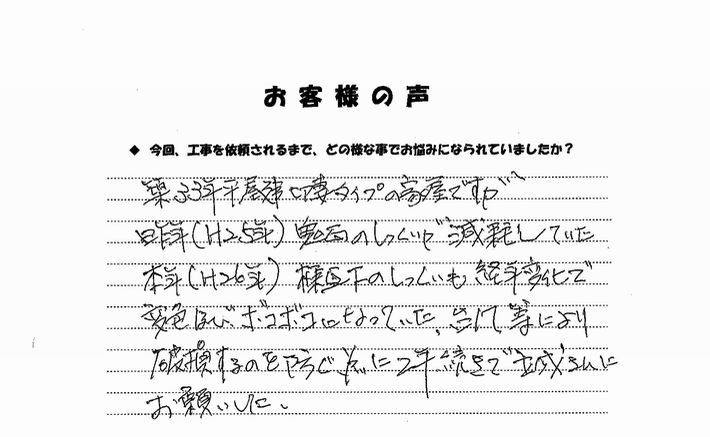 お客様の声
◆ 今回、工事を依頼されるまで、どの様な事でお悩みになられていましたか？
築33年平屋建切妻タイプの家屋ですが
昨年(H25年) 鬼瓦のしっくいが減耗していた
本年(H26年) 棟瓦下のしっくいも経年変化で
変色及びボコボコになっていた。台風等により
破損するのを防ぐ為に2年続きで さんに
お願いした。